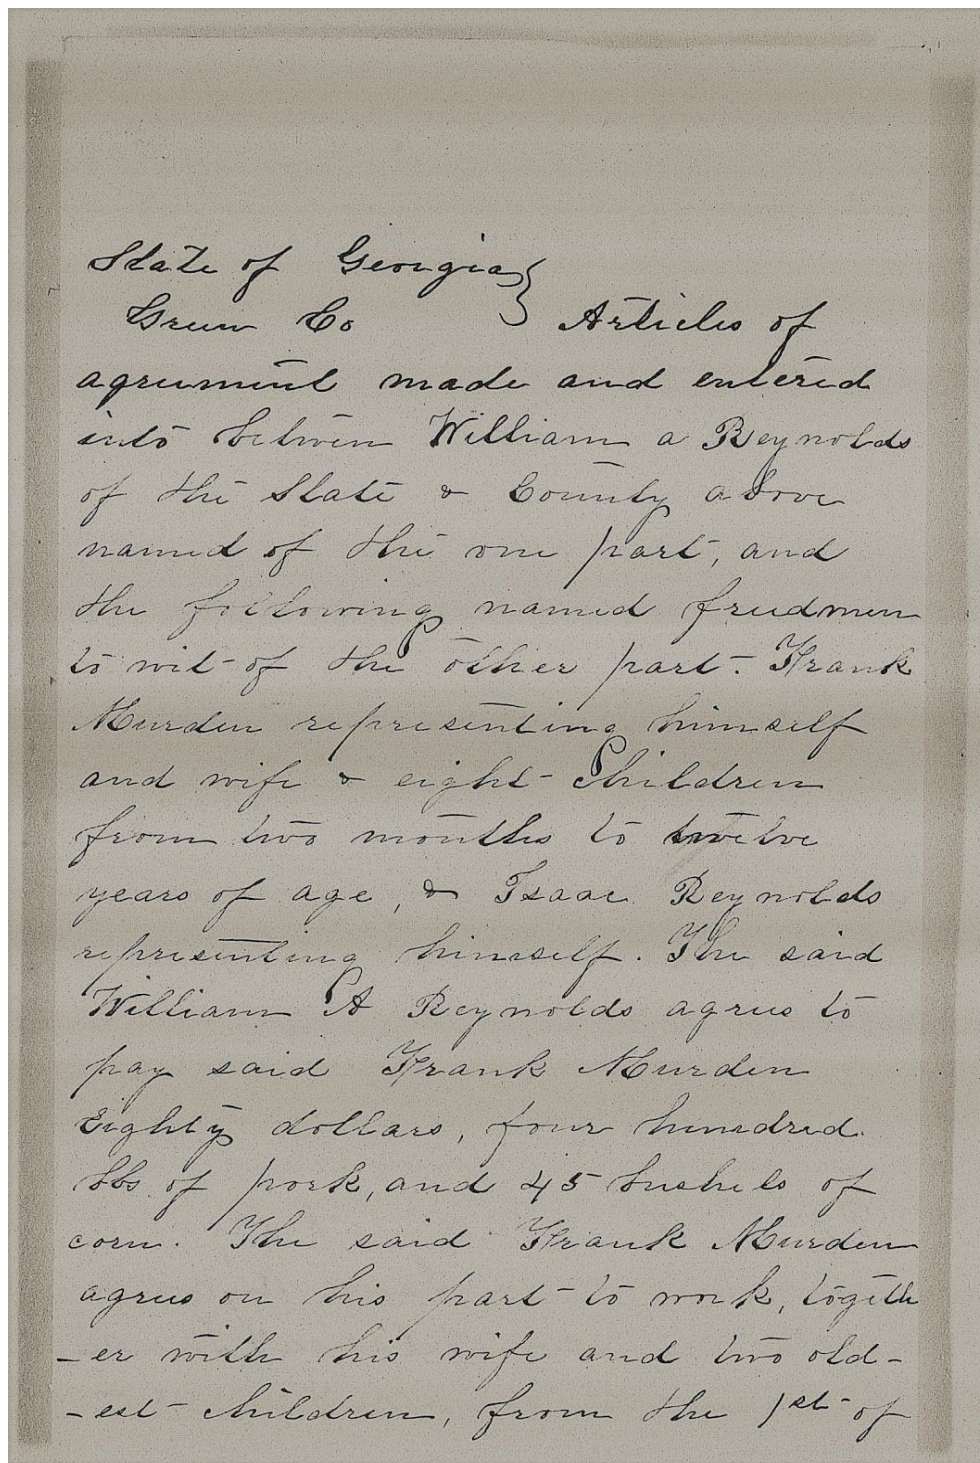 State of Georgia }
Green Co } Articles of
agreement made and entered
into between William a Reynolds
of the State & County above
named of the one part, and
the following named freedmen
to wit of the other part. Frank
Murden representing himself
and wife & eight children
from two months to twelve
years of age, & Isaac Reynolds
representing himself. The said
William A Reynolds agrees to
pay said Frank Murden
Eighty dollars, four hundred
lbs of pork, and 45 bushels of
corn. The said Frank Murden
agrees on his part to work, togeth
-er with his wife and two old-
-est children, from the 1st of